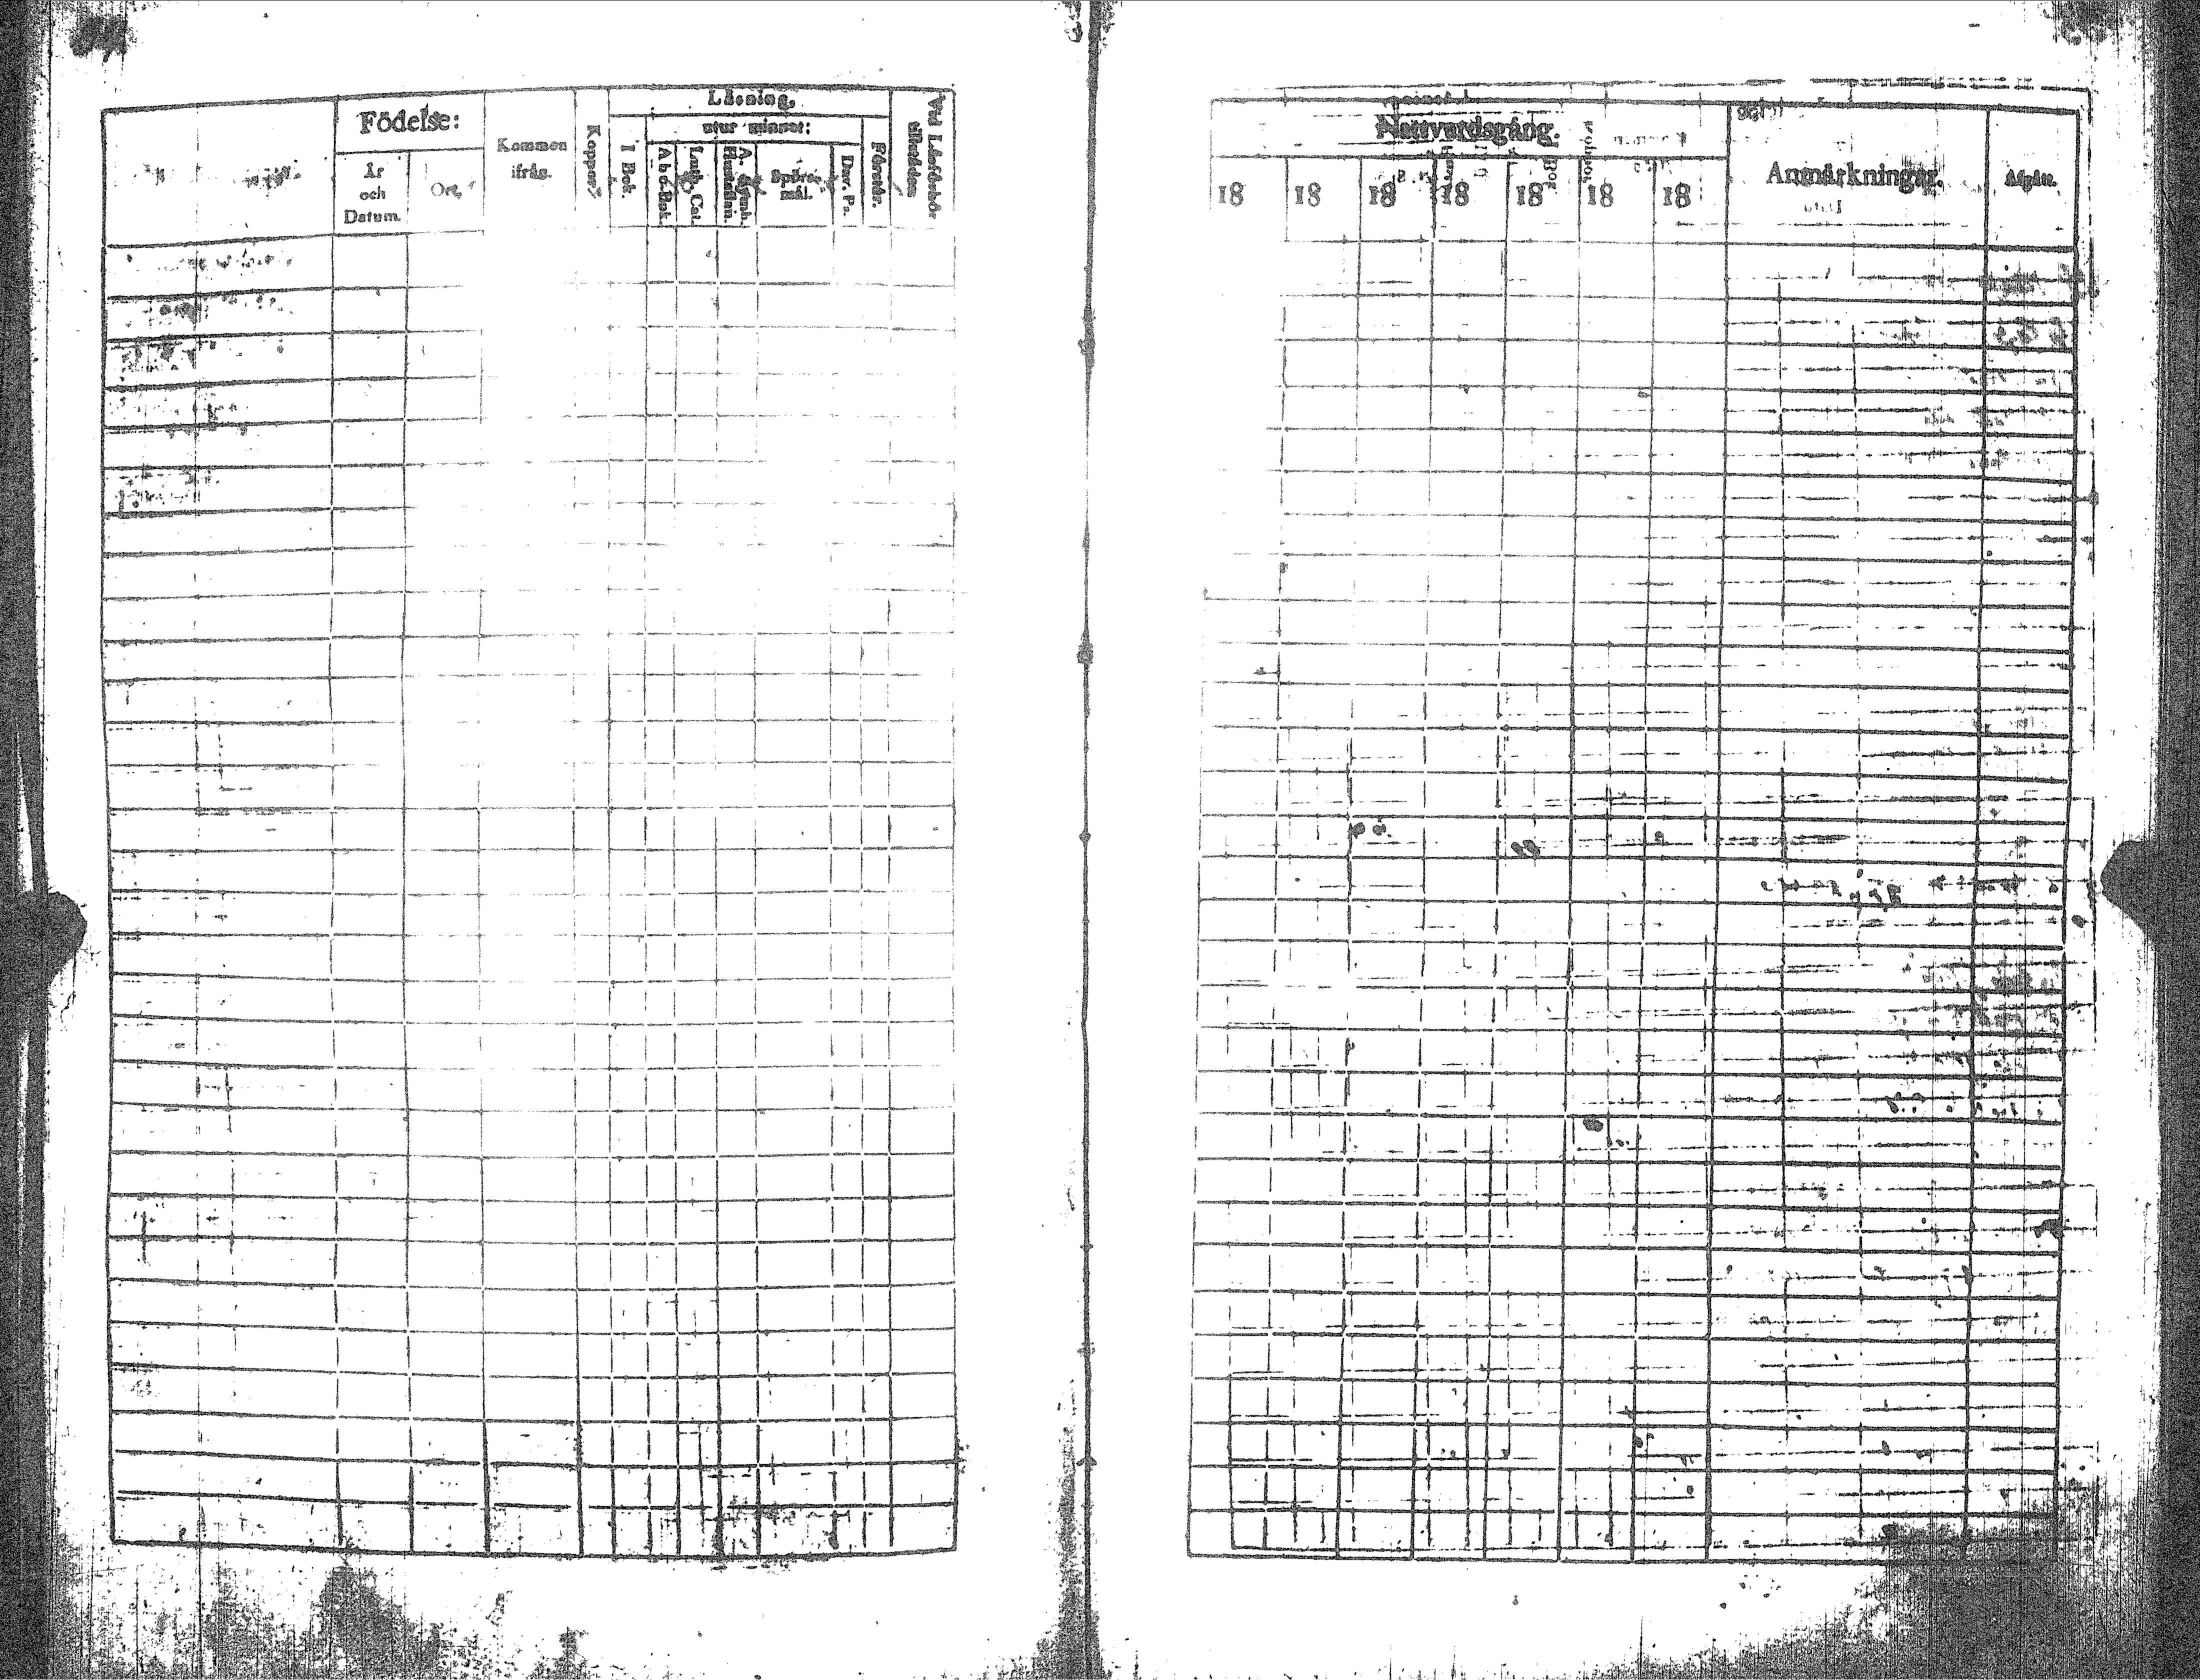 Födelse:
År
och
Datum.
Ort.
Kommen
ifrån.
Koppor.
Läsning,
utur minnet:
I Bok.
A b c-Bok.
Luth. Cat.
A. Symb.
Hustaflan.
Spörs-
mål.
Dav. Ps.
Förstår.
Vid Läsförhör
tillstädes
Nattvardsgång.
18 18 18 18 18 18 18
Anmärkningar.
Afgått.